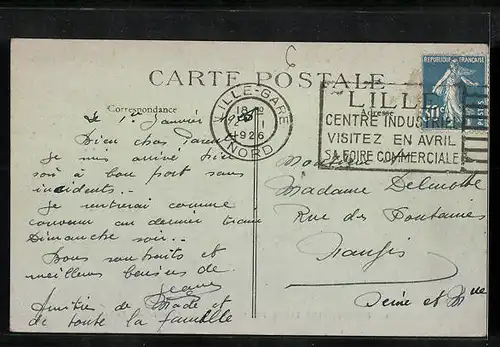 6
CARTE POSTALE
Correspondance
Adresse
RÉPUBLIQUE FRANÇAISE
POSTES
LILLE-GARE
18 30
1 - 1
1926
NORD
LILLE
CENTRE INDUSTRIEL
VISITEZ EN AVRIL
SA FOIRE COMMERCIALE
Le 1er Janvier
Bien chers Parents
Je suis arrivé hier
soir à bon port sans
incidents.-
Je rentrerai comme
convenu au dernier train
Dimanche soir.-
Bons souhaits et
meilleurs baisers de
Jean
Amitiés de et
de toute la famille
Madame Delmotte
Rue des Fontaines
Nangis
Seine et Mne